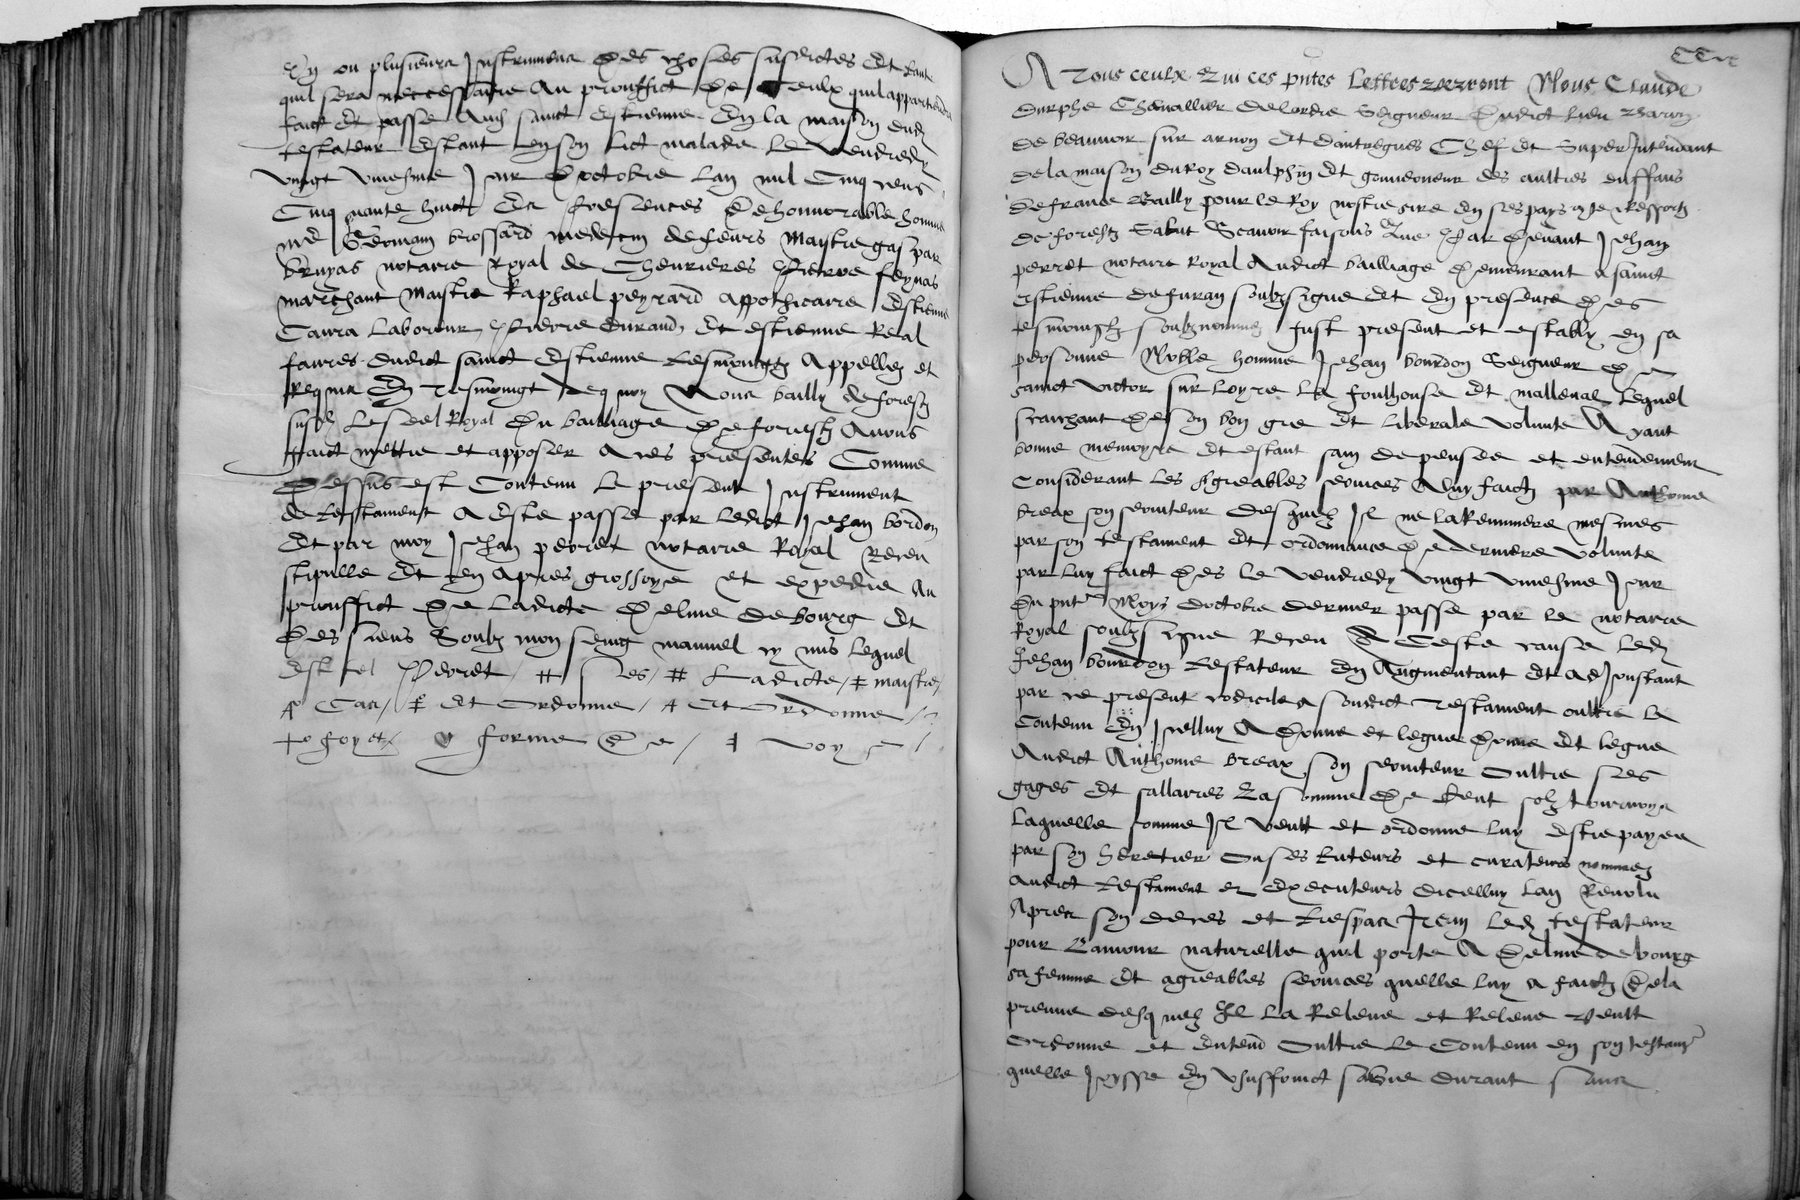 Ung ou plusieurs Instrumens des choses susdictes Et tant
quil sera neccessaire Au prouffict de Ceulx quil appartiendra
faict Et passe Aud sainct Estienne En la maison dud
testateur Estant en son lict malade le vendredy
vingt uniesme Jour Doctobre lan mil Cinq cens
Cinquante huict En presences de honnorable homme
me Germain brossard medecin de feurs Maistre gaspar
bruyas notaire Royal de Chevrieres Pierre feynas
marchant Maistre Raphael peyrard appothicaire Estienne
Caura laboreur Pierre Durand Et estienne Real
faures dudict sainct Estienne tesmoingtz Appellez et
Requis En tesmoingt dequoy Nous bailly de forestz
susd Le Seel Royal Du bailliage de forestz Avons
faict mettre et apposer A ces presentes Comme
Dessus est Contenu Le present Instrument
de testament A Este passe par ledict Jehan bordon
Et par moy Jehan perret notaire Royal Receu
stipulle Et en apres grossoye et expedie Au
prouffict de Ladicte Delme de bourg Et
Des siens Soubz mon seing manuel cy mis lequel
Est tel Perret / # / ses / # Ladicte / ǂ maistre /
Caa / Et Ordonne / + Et Ordonne /
foy et / forme de / ǂ voy
CCix
A Tous ceulx Qui ces pntes Lettres verront Nous Claude
Durphe Chevallier de lordre Seigneur Dudict lieu Baron
de beauvoir sur arnon Et dantragues Chef Et SuperIntendant
de la maison du Roy daulphin Et gouverneur des aultres enffans
de france Bailly pour le Roy nostre sire En ses pays et Ressortz
de forestz Salut Scavoir faisons Que Par Devant Jehan
perret notaire Royal Audict bailliage Demeurant a sainct
Estienne de furan soubzsigne Et En presence Des
tesmoingtz soubznommez fust present et estably en sa
personne Noble homme Jehan bourdon Seigneur De
sainct victor sur loyre La foulhouse Et malleval lequel
scaichant De son bon gre Et liberale volunte Ayant
bonne memoyre Et estant sain de pensee et entendement
Considerant les Agreables services A luy faictz par Anthoine
breax son serviteur Desquelz Il ne la Remunere mesmes
par son testament Et ordonnance De derniere volunte
par luy faict Des le vendredy vingt uniesme Jour
Du pnt Moys doctobre dernier passe par le notaire
Royal soubzsigne Receu A Ceste cause led
Jehan bourdon testateur En Augmentant Et adJoustant
par ce present codicile a sondict testament oultre le
Contenu En Icelluy A Donne et legue Donne Et legue
Audict Anthoine breax son serviteur Oultre ses
gages Et sallaires La somme De Cent solz tournoys
Laquelle somme Il veult et ordonne luy Estre payee
par son heretier Ou ses tuteurs et curateurs nommez
Audict testament et Executeurs dicelluy lan Revolu
Apres son deces et trespas Item led testateur
pour Lamour naturelle quil porte A Delme de bourg
sa femme Et agreables services quelle luy a faictz De la
preuve desquelz Il La Releve et Releve veult
Ordonne et Entend Oultre le Contenu en son testamt
quelle Joysse En Usuffruict sa vie durant sans